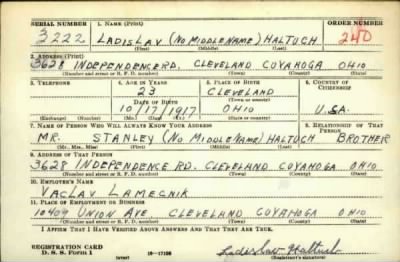 SERIAL NUMBER 1. NAME (Print) ORDER NUMBER
3222 LADISLAV (NO MIDDLE NAME) HALTUCH 240
(First) (Middle) (Last)
2. ADDRESS (Print)
3628 INDEPENDENCE RD. CLEVELAND CUYAHOGA OHIO
(Number and street or R. F. D. number) (Town) (County) (State)
3. TELEPHONE 4. AGE IN YEARS 5. PLACE OF BIRTH 6. COUNTRY OF CITIZENSHIP
23 CLEVELAND
DATE OF BIRTH (Town or county)
10/17/1917 OHIO U.S.A.
(Exchange) (No.) (Mo.) (Day) (Yr.) (State or country)
7. NAME OF PERSON WHO WILL ALWAYS KNOW YOUR ADDRESS 8. RELATIONSHIP OF THAT PERSON
MR. STANLEY (NO MIDDLE NAME) HALTUCH BROTHER
(Mr., Mrs., Miss) (First) (Middle) (Last)
9. ADDRESS OF THAT PERSON
3628 INDEPENDENCE RD. CLEVELAND CUYAHOGA OHIO
(Number and street or R. F. D. number) (Town) (County) (State)
10. EMPLOYER'S NAME
VACLAV LAMECNIK
11. PLACE OF EMPLOYMENT OR BUSINESS
10409 UNION AVE. CLEVELAND CUYAHOGA OHIO
(Number and street or R. F. D. number) (Town) (County) (State)
I AFFIRM THAT I HAVE VERIFIED ABOVE ANSWERS AND THAT THEY ARE TRUE.
REGISTRATION CARD
D. S. S. Form 1 (over) Ladislav Haltuch
(Registrant's signature)